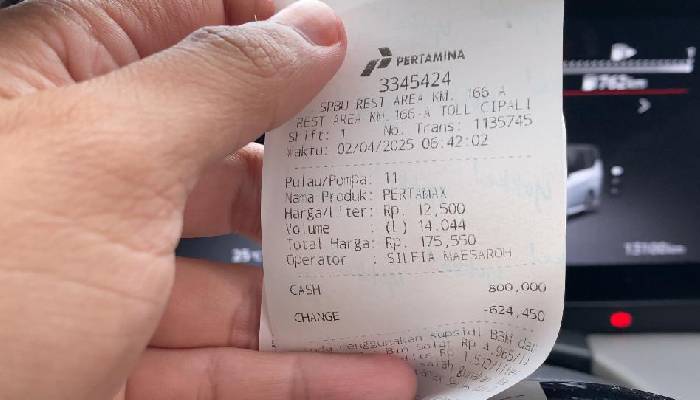 PERTAMINA
3345424
SPBU REST AREA KM. 166 A
REST AREA KM.166-A TOLL CIPALI
Shift: 1 No. Trans: 1135745
Waktu: 02/04/2025 06:42:02
Pulau/Pompa: 11
Nama Produk: PERTAMAX
Harga/Liter: Rp. 12,500
Volume : (L) 14.044
Total Harga: Rp. 175,550
Operator : SILFIA MAESAROH
CASH 800,000
CHANGE -624,450
menggunakan supsidi BBM dar
Solar Rp
25°C